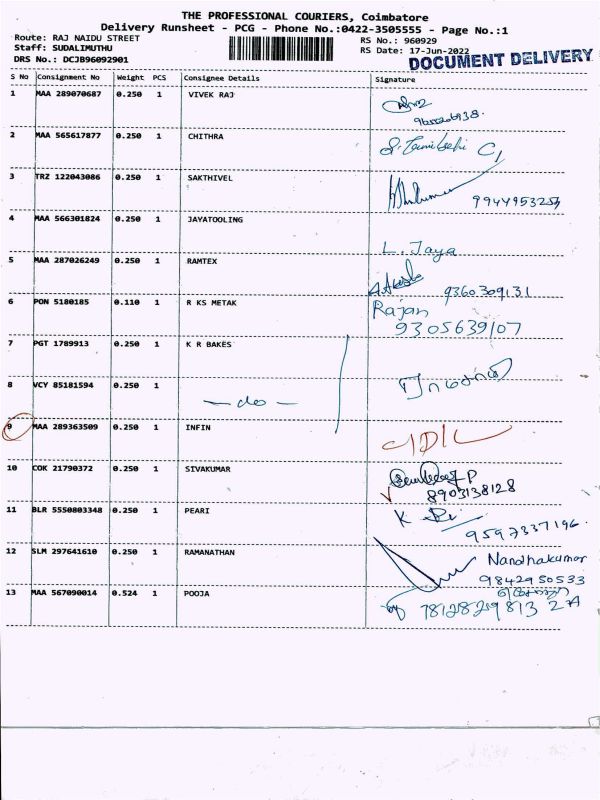 THE PROFESSIONAL COURIERS, Coimbatore
Delivery Runsheet - PCG - Phone No.:0422-3505555 - Page No.:1
Route: RAJ NAIDU STREET
Staff: SUDALIMUTHU
DRS No.: DCJB96092901
RS No.: 960929
RS Date: 17-Jun-2022
DOCUMENT DELIVERY
S No Consignment No Weight PCS Consignee Details Signature
1 MAA 289070687 0.250 1 VIVEK RAJ
2 MAA 565617877 0.250 1 CHITHRA
3 TRZ 122043086 0.250 1 SAKTHIVEL
4 MAA 566301824 0.250 1 JAYATOOLING
L. Jaya
5 MAA 287026249 0.250 1 RAMTEX
9360309131
6 PON 5180185 0.110 1 R KS METAK Rajan
9305639107
7 PGT 1789913 0.250 1 K R BAKES
8 VCY 85181594 0.250 1
— do —
9 MAA 289363509 0.250 1 INFIN
10 COK 21790372 0.250 1 SIVAKUMAR
8903138128
11 BLR 5550803348 0.250 1 PEARI K
9597337196
12 SLM 297641610 0.250 1 RAMANATHAN Nandhakumar
9842950533
13 MAA 567090014 0.524 1 POOJA